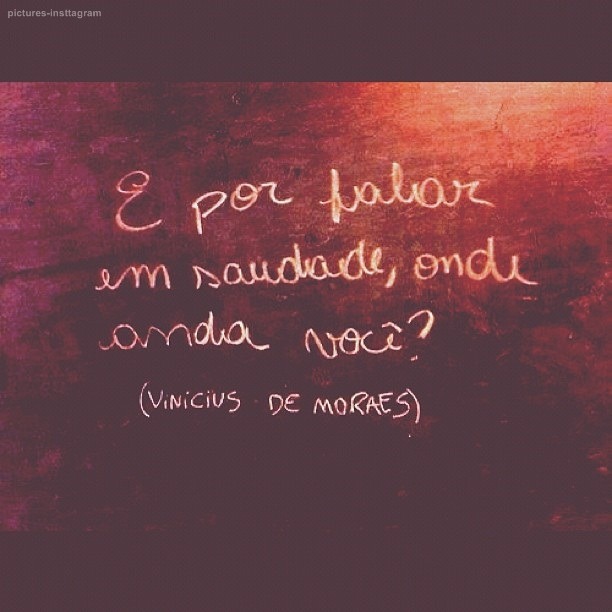 pictures-insttagram
E por falar
em saudade, onde
anda você?
(VINICIUS DE MORAES)